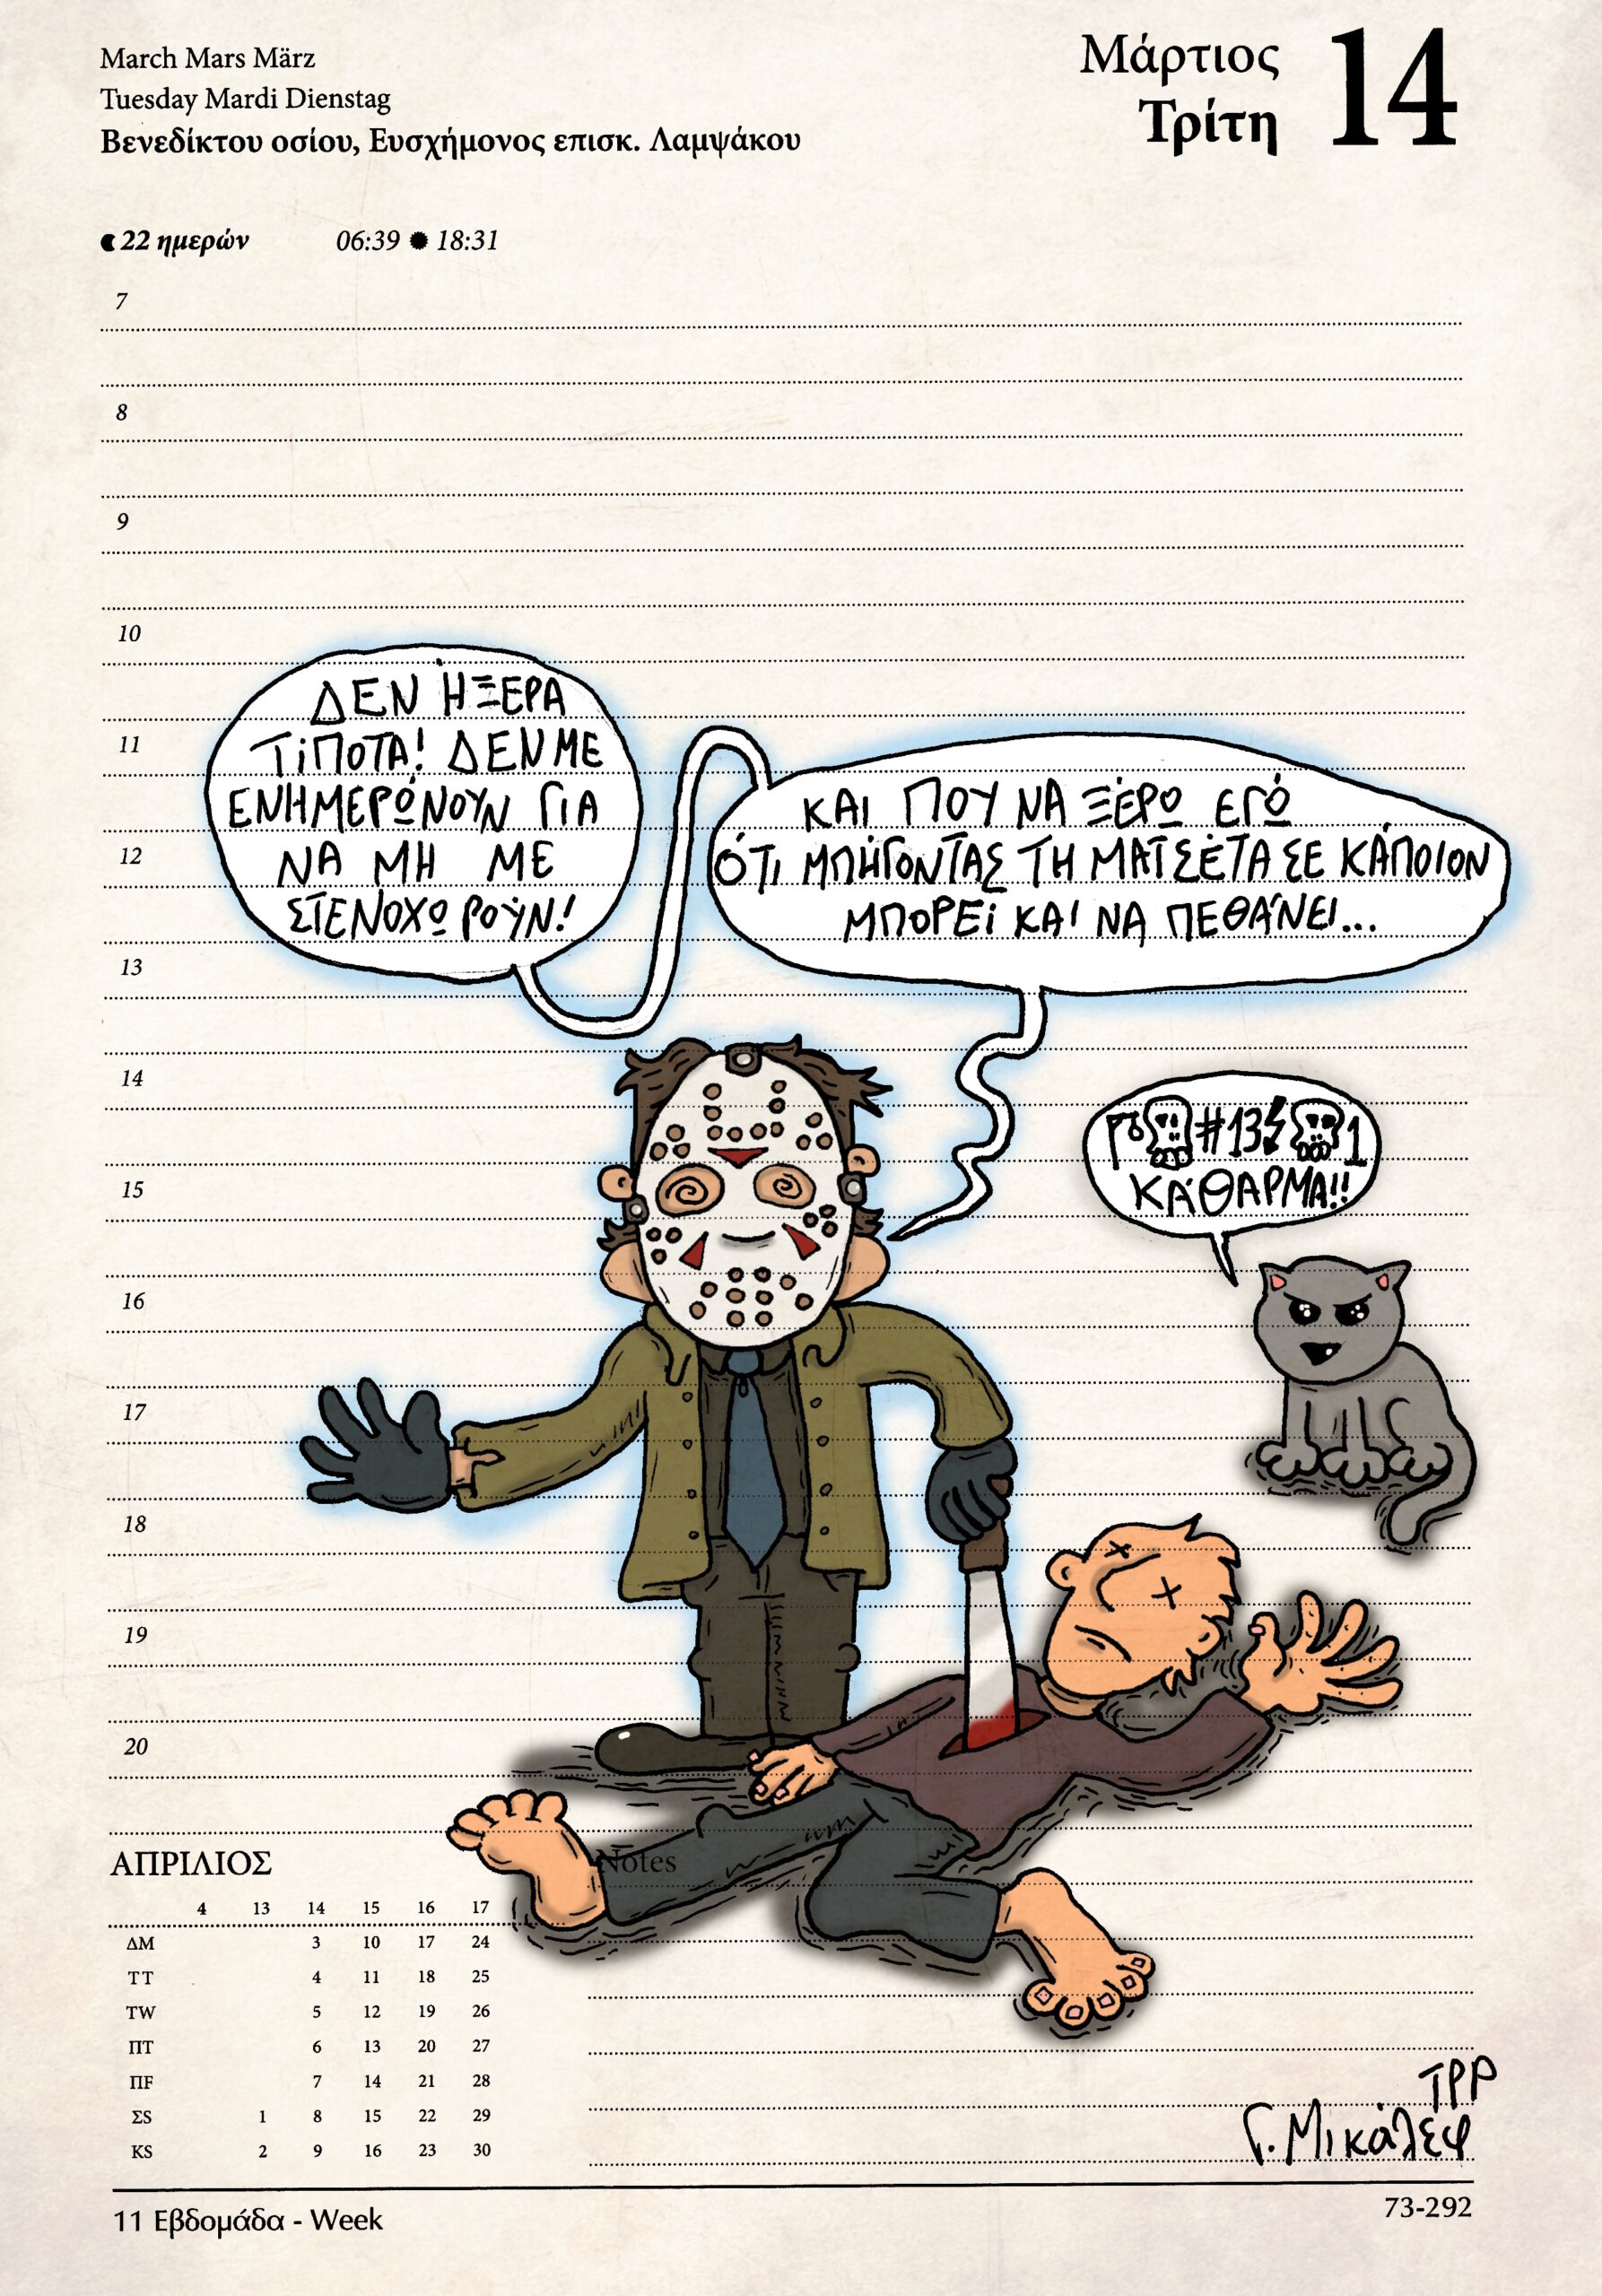 March Mars März
Tuesday Mardi Dienstag
Βενεδίκτου οσίου, Ευσχήμονος επισκ. Λαμψάκου
Μάρτιος
Τρίτη
14
22 ημερών 06:39 18:31
7
8
9
10
11
12
13
14
15
16
17
18
19
20
ΔΕΝ ΉΞΕΡΑ
ΤΊΠΟΤΑ! ΔΕΝ ΜΕ
ΕΝΗΜΕΡΏΝΟΥΝ ΓΙΑ
ΝΑ ΜΗ ΜΕ
ΣΤΕΝΟΧΩΡΟΎΝ!
ΚΑΙ ΠΟΥ ΝΑ ΞΈΡΩ ΕΓΏ
ΌΤΙ ΜΠΉΓΟΝΤΑΣ ΤΗ ΜΑΤΣΈΤΑ ΣΕ ΚΆΠΟΙΟΝ
ΜΠΟΡΕΊ ΚΑΙ ΝΑ ΠΕΘΆΝΕΙ...
#13 1
ΚΆΘΑΡΜΑ!!
ΑΠΡΙΛΙΟΣ
4 13 14 15 16 17
ΔΜ 3 10 17 24
ΤΤ 4 11 18 25
ΤW 5 12 19 26
ΠΤ 6 13 20 27
ΠF 7 14 21 28
ΣS 1 8 15 22 29
KS 2 9 16 23 30
Notes
ΤΡΡ
Γ. Μικάλεφ
11 Εβδομάδα - Week
73-292